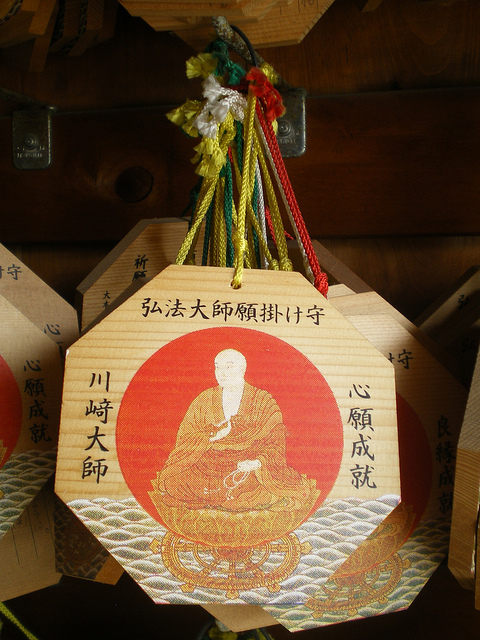 弘法大師願掛け守
川崎大師
心願成就
心願成就
良縁成就
祈願
け守